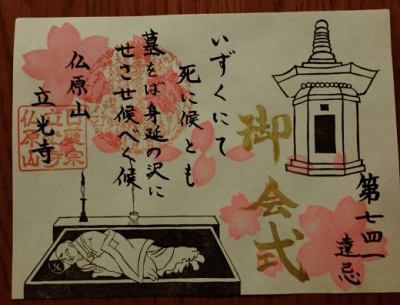 第七四一
遠忌
御会式
いずくにて
死に候とも
墓をば身延の沢に
せさせ候べく候
仏原山
立光寺
仏原山